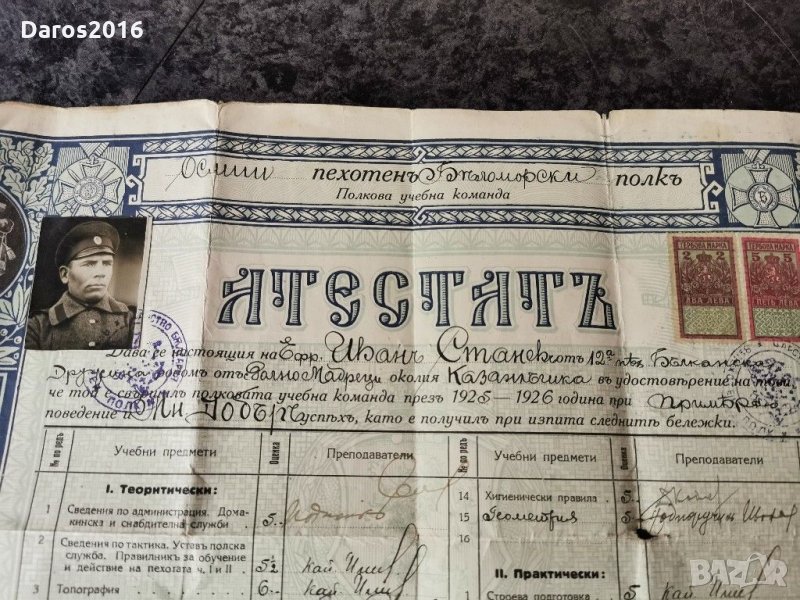 Daros2016
Осмии пехотенъ Бѣломорски полкъ
Полкова учебна команда
АТЕСТАТЪ
ГЕРБОВА МАРКА ГЕРБОВА МАРКА
2 2 5 5
ДВА ЛЕВА ПЕТЬ ЛЕВА
Дава се настоящия на Ефр. Иванъ Станевъ отъ 12а пѣш. Бѣлканска
Дружина родомъ отъ околия Казанлъшка въ удостовѣрение на това,
че той е свършилъ полковата учебна команда презъ 1925 – 1926 година при
поведение и Мн. Добъръ успѣхъ, като е получилъ при изпита следнитѣ бележки.
№ по редъ Учебни предмети Оценка Преподаватели № по редъ Учебни предмети Оценка Преподаватели
I. Теоритически:
1 Сведения по администрация. Дома-
кинскѝ и снабдителна служби 5.
2 Сведения по тактика. Уставъ полска
служба. Правилникъ за обучение
и действие на пехотата ч. I и II 5½ Кап.
3 Топография 6. Кап.
14 Хигиенически правила
15 Геометрия 5. Подпоручикъ
16
II. Практически:
1 Строева подготовка Кап.
BAZAR